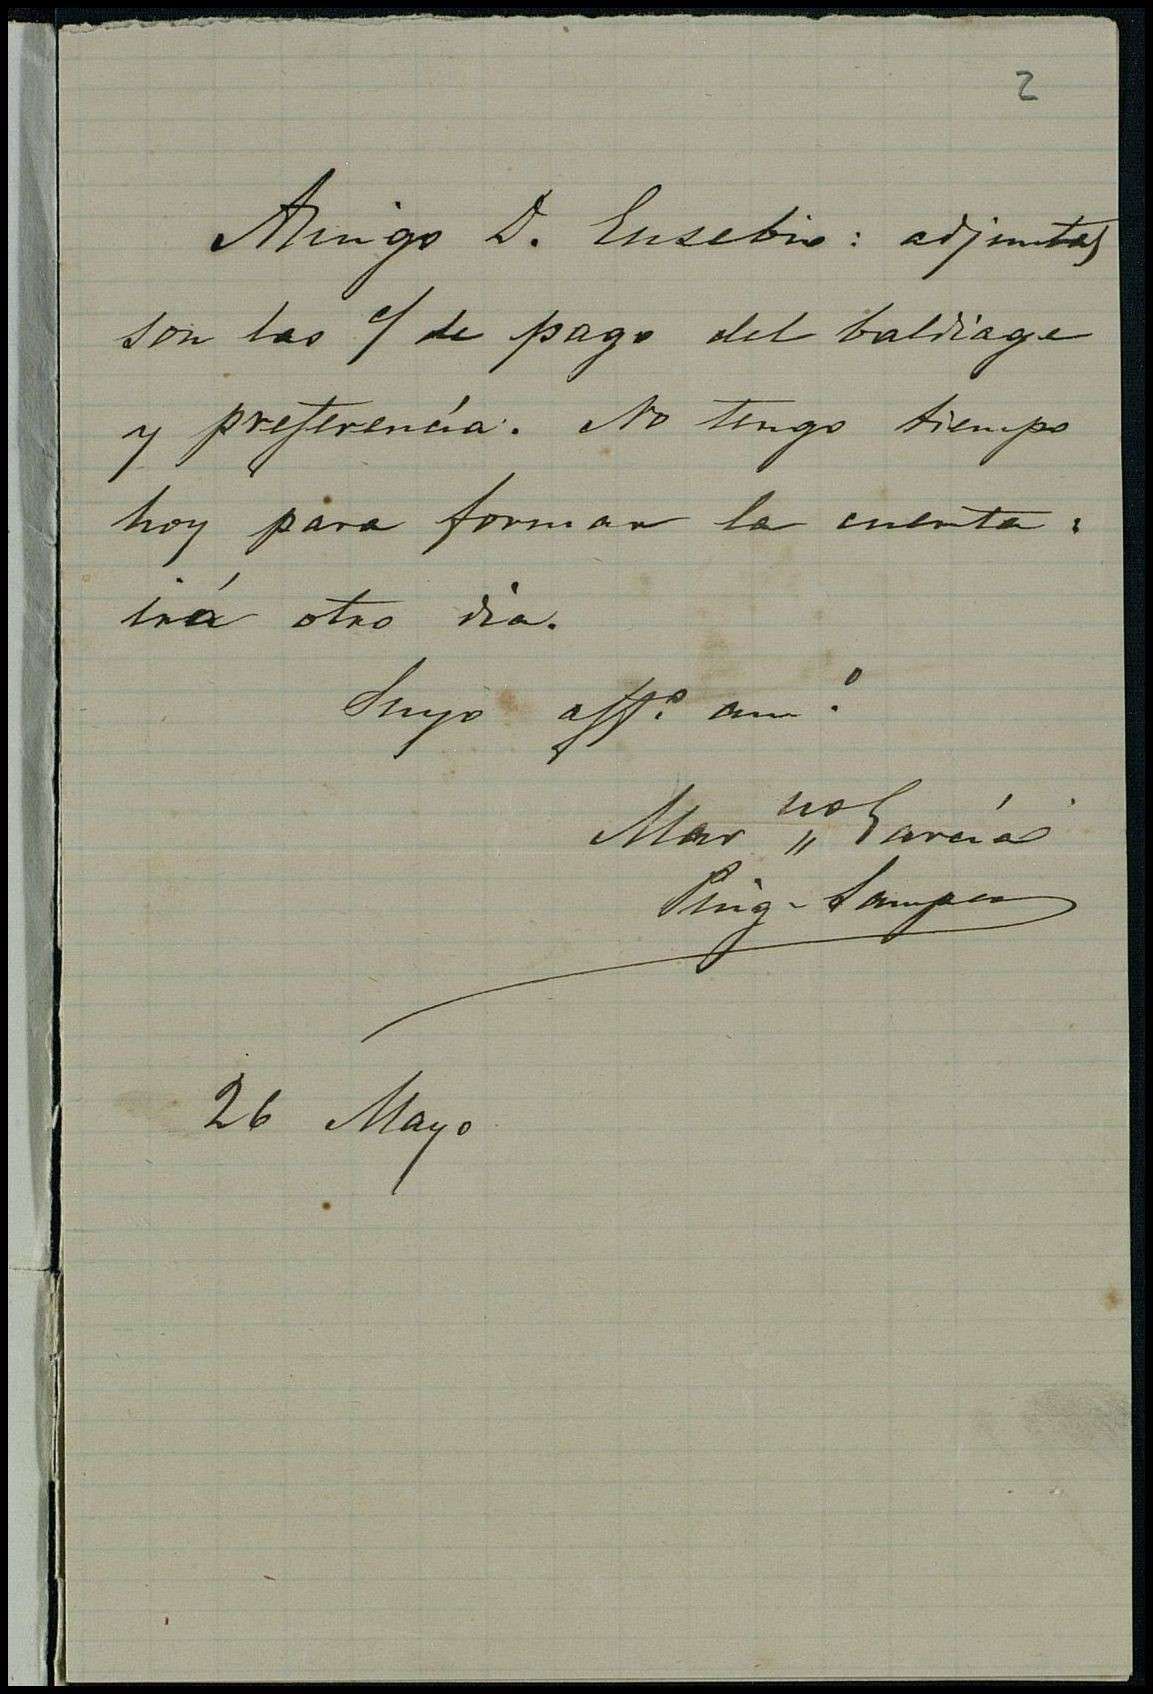 2
Amigo D. Eusebio: adjuntas
son las c/ de pago del baldiage
y preferencia. No tengo tiempo
hoy para formar la cuenta:
irá otro dia.
Suyo aff.º am.º
Mar.no García
Puig-Samper
26 Mayo